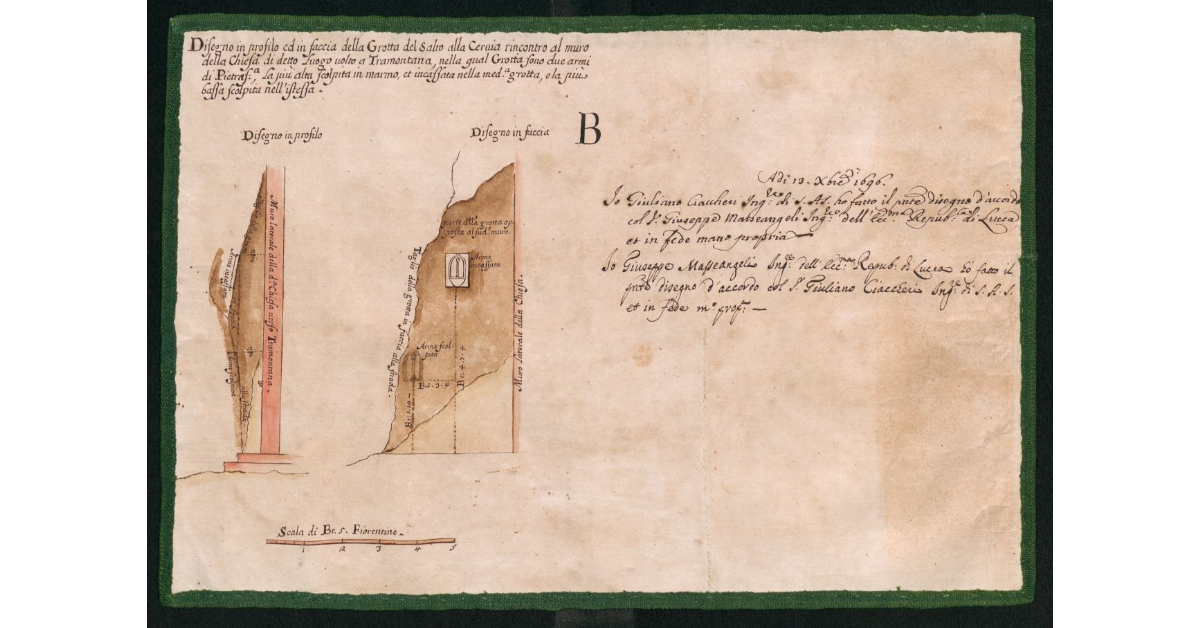 Disegno in profilo ed in faccia della Grotta del Salto alla Cervia rincontro al muro
della Chiesa di detto Luogo volto a Tramontana, nella qual Grotta sono due armi
di Pietras:ª, La più alta scolpita in marmo, et incassata nella med.ª grotta, e la più
bassa scolpita nell'istessa.
Disegno in profilo
Disegno in faccia
B
Muro laterale della d.ª Chiesa verso Tramontana.
parte della grotta op
posta al sud.º muro.
Arme
incassata
Taglio della grotta in faccia alla strada.
Arme scol
pita
Br. 5. 3. 4
Br. 4. 3. 4
Muro laterale della Chiesa.
Adi 13. Xbre 1696.
Io Giuliano Ciaccheri Ing:re di S.A.S. ho fatto il pnte disegno d'accordo
col S.r Giuseppe Masseangeli Ing:re dell'Ecc:ma Repub:ca di Lucca
et in fede mano propria
Io Giuseppe Masseangeli Ing:re dell'Ecc:ma Repub: di Lucca hò fatto il
pnte disegno d'accordo col S.r Giuliano Ciaccheri Ing:re di S.A.S.
et in fede m.º prop:ª
Scala di Br. 5. Fiorentine.
1 2 3 4 5